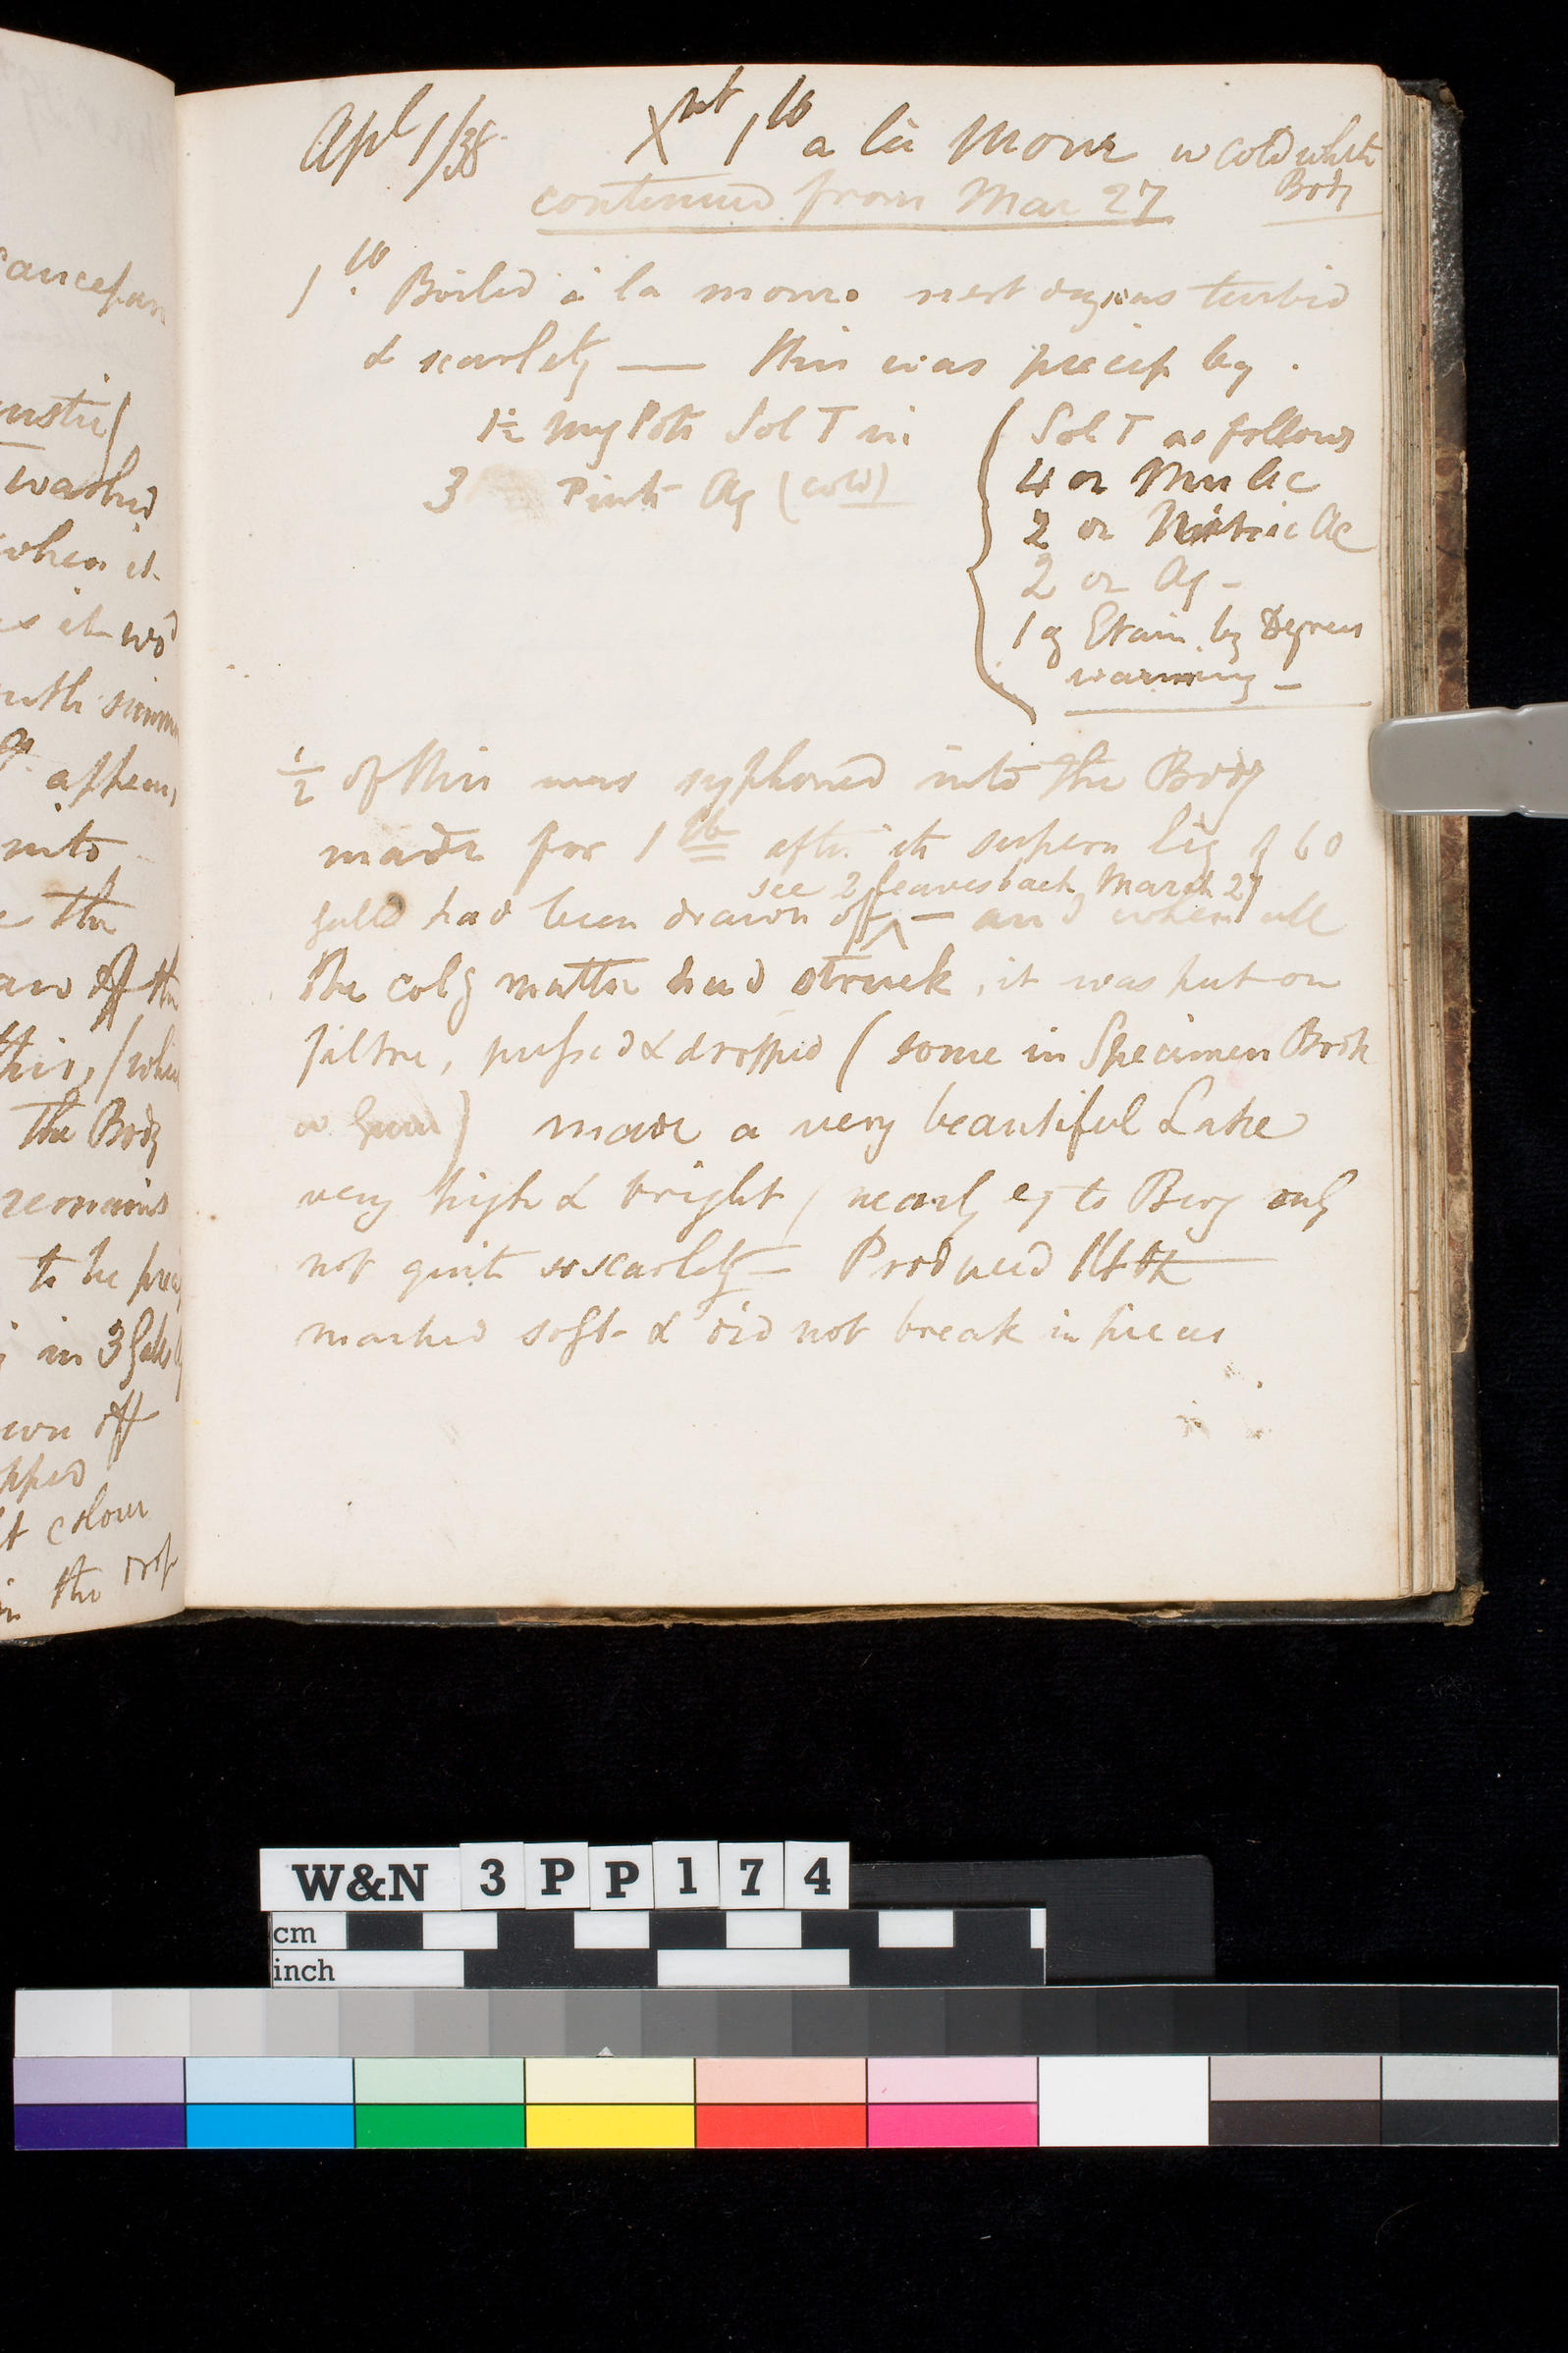 ancefan
ustic)
washed
when it
as it wod
with simm
appear
into
the
the
this, (when
the Body
remains
to be prec
in 3 Galls
wn off
pped
t colour
in the
Apl 1/38 Xpt 1 lb a la Mour w cold white
Body
continued from Mar 27
1 lb Boiled à la mour. next day was turbid
& scarlety — this was precip by.
1½ my Pots Sol T in
3 Pints Aq (cold)
Sol T as follows
4 oz Mur Ac
2 oz Nitric Ac
2 oz Aq –
1 oz Etain by Degrees
warming –
½ of this was syphoned into the Body
made for 1 lb after its supern liq of 60
see 2 leaves back March 27
galls had been drawn off ^ – and when all
the colg matter had struck, it was put on
filtre, pressed & dropped (some in Specimen Book
w Gum) made a very beautiful Lake
very high & bright (nearly eq to Berg only
not quite so scarlety – Produced 14 oz
mashed soft & did not break in pieces
W&N 3 P P 1 7 4
cm
inch